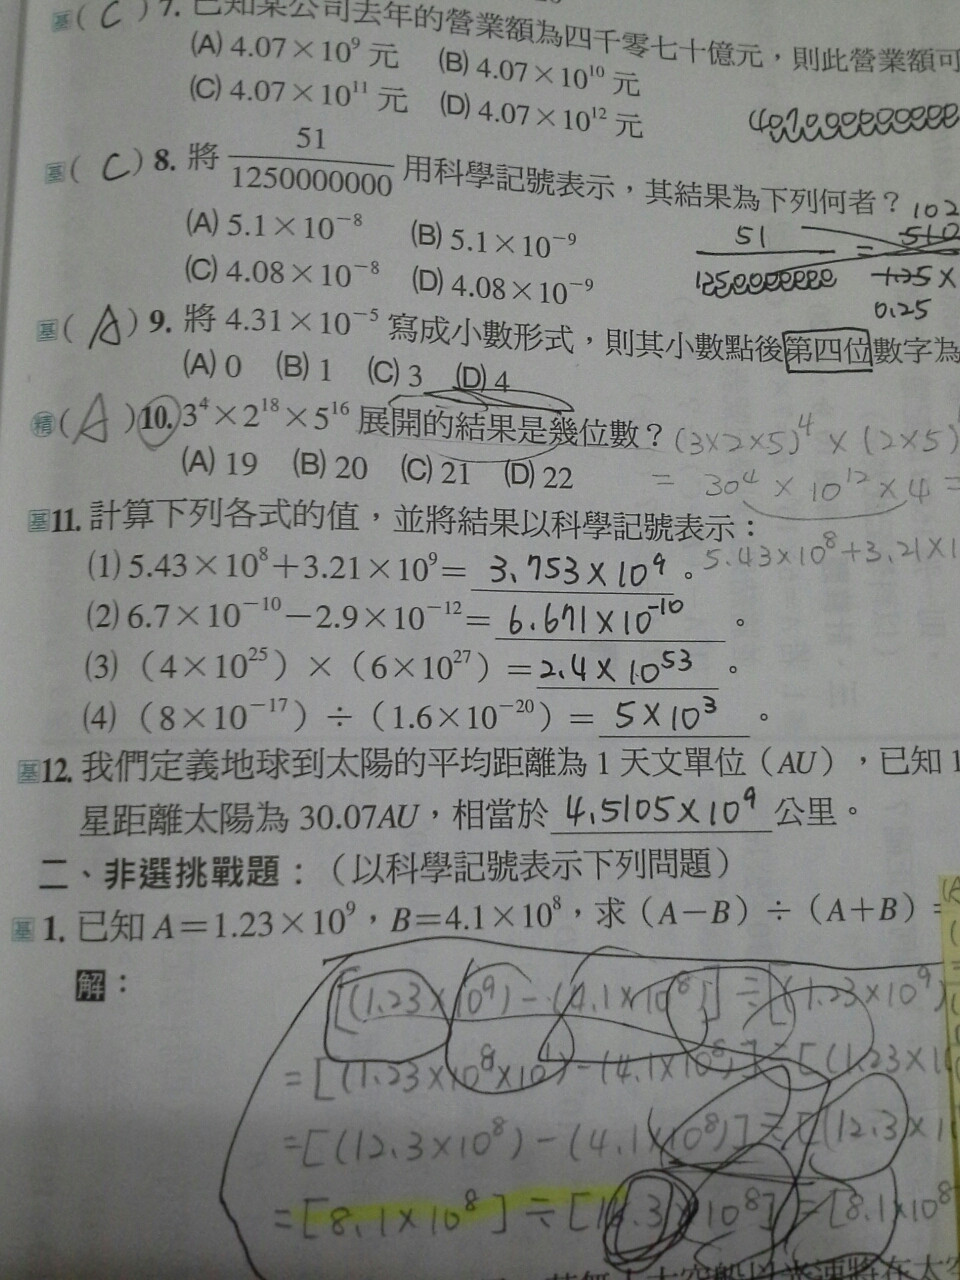 基 ( C ) 7. 已知某公司去年的營業額為四千零七十億元，則此營業額可
(A) 4.07×10⁹ 元 (B) 4.07×10¹⁰ 元
(C) 4.07×10¹¹ 元 (D) 4.07×10¹² 元
基 ( C ) 8. 將 51/1250000000 用科學記號表示，其結果為下列何者？ 102
(A) 5.1×10⁻⁸ (B) 5.1×10⁻⁹
(C) 4.08×10⁻⁸ (D) 4.08×10⁻⁹
0.25
基 ( A ) 9. 將 4.31×10⁻⁵ 寫成小數形式，則其小數點後第四位數字為
(A) 0 (B) 1 (C) 3 (D) 4
精 ( A ) 10. 3⁴×2¹⁸×5¹⁶ 展開的結果是幾位數？ (3×2×5)⁴ × (2×5)
(A) 19 (B) 20 (C) 21 (D) 22 = 30⁴ × 10¹² × 4 =
基 11. 計算下列各式的值，並將結果以科學記號表示：
(1) 5.43×10⁸＋3.21×10⁹＝ 3.753×10⁹ 。 5.43×10⁸+3.21×1
(2) 6.7×10⁻¹⁰－2.9×10⁻¹²＝ 6.671×10⁻¹⁰ 。
(3) （4×10²⁵）×（6×10²⁷）＝ 2.4×10⁵³ 。
(4) （8×10⁻¹⁷）÷（1.6×10⁻²⁰）＝ 5×10³ 。
基 12. 我們定義地球到太陽的平均距離為 1 天文單位（AU），已知 1
星距離太陽為 30.07AU，相當於 4.5105×10⁹ 公里。
二、非選挑戰題：（以科學記號表示下列問題）
基 1. 已知 A＝1.23×10⁹，B＝4.1×10⁸，求（A－B）÷（A＋B）＝
解：
[(1.23×10⁹)-(4.1×10⁸)]÷[(1.23×10⁹)
=[(1.23×10⁸×10)-(4.1×10⁸)]÷[(1.23×1
=[(12.3×10⁸)-(4.1×10⁸)]÷[(12.3×1
=[8.1×10⁸]÷[16.3×10⁸]=[8.1×10⁸